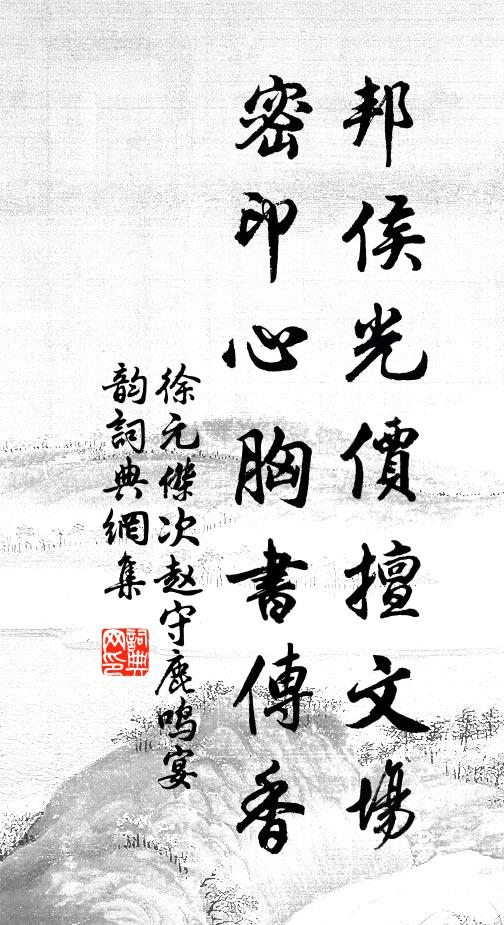 邦侯光價擅文場
密印心胸書傳香
徐元傑次赵守鹿鸣宴
韵詞典網集
詞典网印